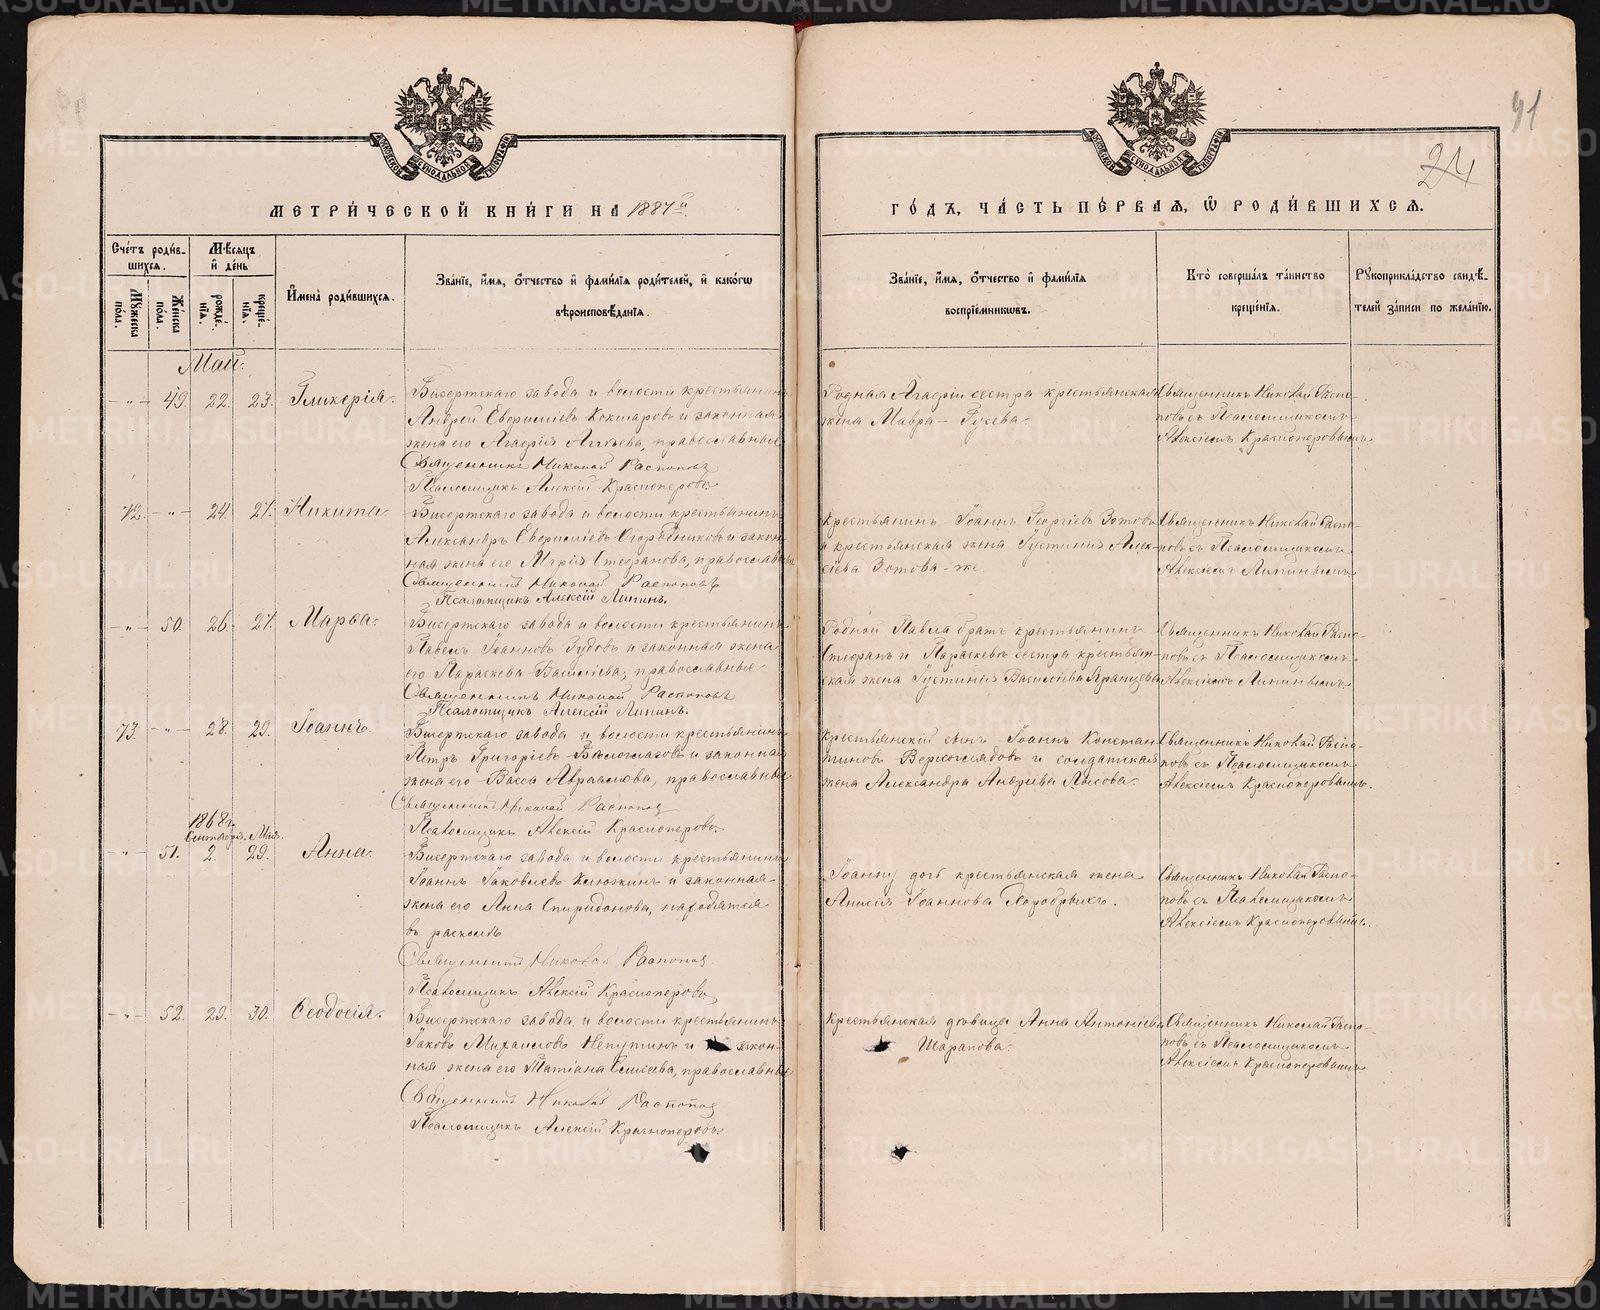 91
24
МЕТРИ́ЧЕСКОЙ КНИ́ГИ НА 1887й
ГО́ДЪ, ЧА́СТЬ ПЕ́РВАЯ, Ѿ РОДИ́ВШИХСЯ.
Сче́тъ роди́в-
шихся.
Мѣ́сяцъ
и҆ де́нь
Мꙋ́жеска
по́ла.
Же́нска
по́ла.
рожде́-
нїѧ.
креще́-
нїѧ.
И҆мена̀ роди́вшихся.
Зва́нїе, и҆́мя, ѻ҆́тчество и҆ фами́лїя роди́телей, и҆ како́гѡ
вѣроисповѣ́данїя.
Зва́нїе, и҆́мя, ѻ҆́тчество и҆ фами́лїя
воспрїе́мниковъ.
Кто̀ соверша́лъ та́инство
креще́нїя.
Рꙋкоприкла́дство свидѣ́-
телей за́писи по жела́нїю.
Май.
-"- 49. 22. 23. Гликерія.
Бисертскаго завода и волости крестьянинъ
Андрей Еворисліевъ Кокшаровъ и законная
жена его Агафія, православные
Священникъ Николай Распоповъ
Псаломщикъ Алексій Красноперовъ
Родная Агафіи сестра крестьянская
жена Мавра Гусева.
Священникъ Николай Распо-
повъ съ Псаломщикомъ
Алексіемъ Красноперовымъ.
72. -"- 24. 27. Никита.
Бисертскаго завода и волости крестьянинъ
Александръ и закон-
ная жена его Марія Стефанова, православные
Священникъ Николай Распоповъ
Псаломщикъ Алексій Липинъ.
Крестьянинъ Іоаннъ Георгіевъ Зотовъ
и крестьянская жена Іустинія Алек-
сіева Зотова-же.
Священникъ Николай Распо-
повъ съ Псаломщикомъ
Алексіемъ Липинымъ.
-"- 50. 26. 27. Марѳа.
Бисертскаго завода и волости крестьянинъ
Павелъ Іоанновъ Зудовъ и законная жена
его Параскева Васильева, православные
Священникъ Николай Распоповъ
Псаломщикъ Алексій Липинъ.
Родной Павла братъ крестьянинъ
Стефанъ и Параскевы сестра крестьян-
ская жена Іустинія Васильева
Священникъ Николай Распо-
повъ съ Псаломщикомъ
Алексіемъ Липинымъ.
73. -"- 28. 29. Іоаннъ.
Бисертскаго завода и волости крестьянинъ
Петръ Григоріевъ Бѣлоглазовъ и законная
жена его Васса Авраамова, православные
Священникъ Николай Распопов
Псаломщикъ Алексій Красноперовъ.
Крестьянскій сынъ Іоаннъ Констан-
тиновъ и солдатская
жена Александра Андреева Лысова.
Священникъ Николай Распо-
повъ съ Псаломщикомъ
Алексіемъ Красноперовымъ.
1868 г.
Сентября. Мая.
" 51. 2. 29. Анна.
Бисертскаго завода и волости крестьянинъ
Іоаннъ Іаковлевъ Клюжинъ и законная
жена его Анна Спиридонова, находятся
въ расколѣ
Священникъ Николай Распопов
Псаломщикъ Алексій Красноперовъ
Іоанну крестьянская жена
Анисія Іоаннова Хоробрыхъ.
Священникъ Николай Распо-
повъ съ Псаломщикомъ
Алексіемъ Красноперовымъ.
-"- 52. 29. 30. Ѳеодосія.
Бисертскаго завода и волости крестьянинъ
Іаковъ Михаиловъ Непутинъ и закон-
ная жена его Татіана Елисеева, православные
Священникъ Николай Распопов
Псаломщикъ Алексій Красноперовъ.
Крестьянская дѣвица Анна Антоніева
Шарапова.
Священникъ Николай Распо-
повъ съ Псаломщикомъ
Алексіемъ Красноперовымъ